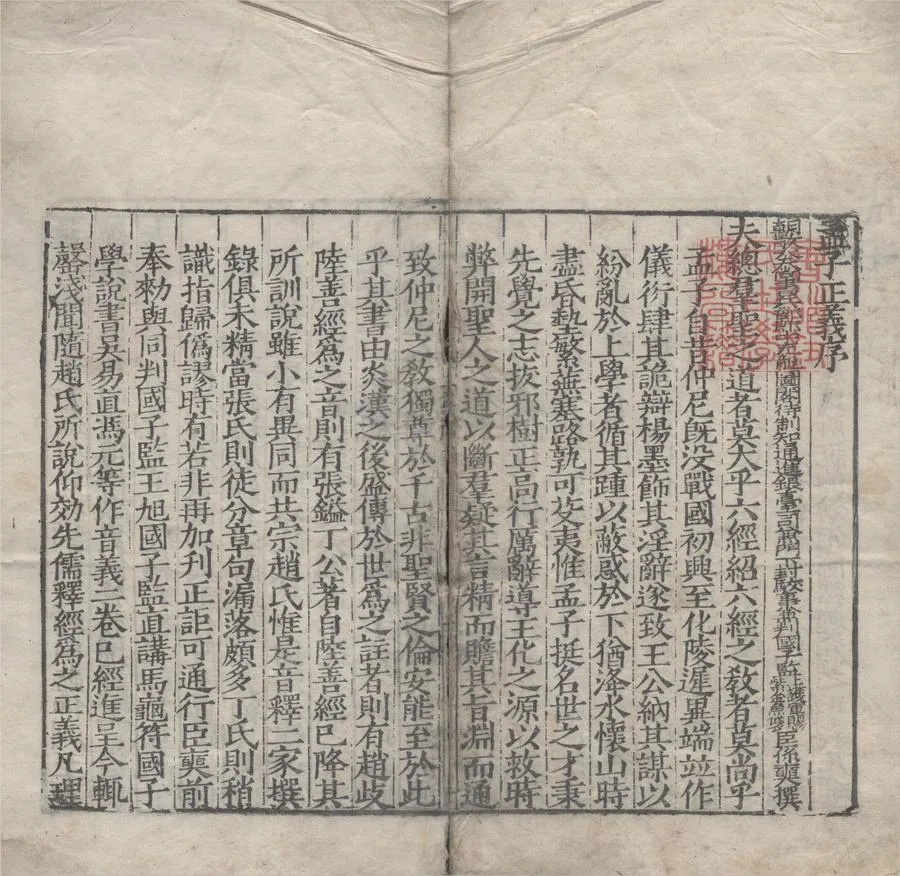 孟子正義序
朝散大夫尚書兵部郎中充龍圖閣待制知通進銀臺司兼門下封駁事兼判國子監上護軍賜紫金魚袋臣孫奭撰
夫總羣聖之道者莫大乎六經紹六經之教者莫尚乎
孟子自昔仲尼既没戰國初興至化陵遲異端並作
儀衍肆其詭辯楊墨飾其淫辭遂致王公納其謀以
紛亂於上學者循其踵以蔽惑於下猶洚水懷山時
盡昏墊繁蕪塞路孰可芟夷惟孟子挺名世之才秉
先覺之志拔邪樹正高行厲辭導王化之源以救時
弊開聖人之道以斷羣疑其言精而贍其旨淵而通
致仲尼之教獨尊於千古非聖賢之倫安能至於此
乎其書由炎漢之後盛傳於世爲之註者則有趙歧
陸善經爲之音則有張鎰丁公著自陸善經已降其
所訓說雖小有異同而共宗趙氏惟是音釋二家撰
錄俱未精當張氏則徒分章句漏落頗多丁氏則稍
識指歸僞謬時有若非再加刊正詎可通行臣奭前
奉勑與同判國子監王旭國子監直講馬龜符國子
學說書吳易直馮元等作音義二卷已經進呈今輒
罄淺聞隨趙氏所說仰効先儒釋經爲之正義凡理